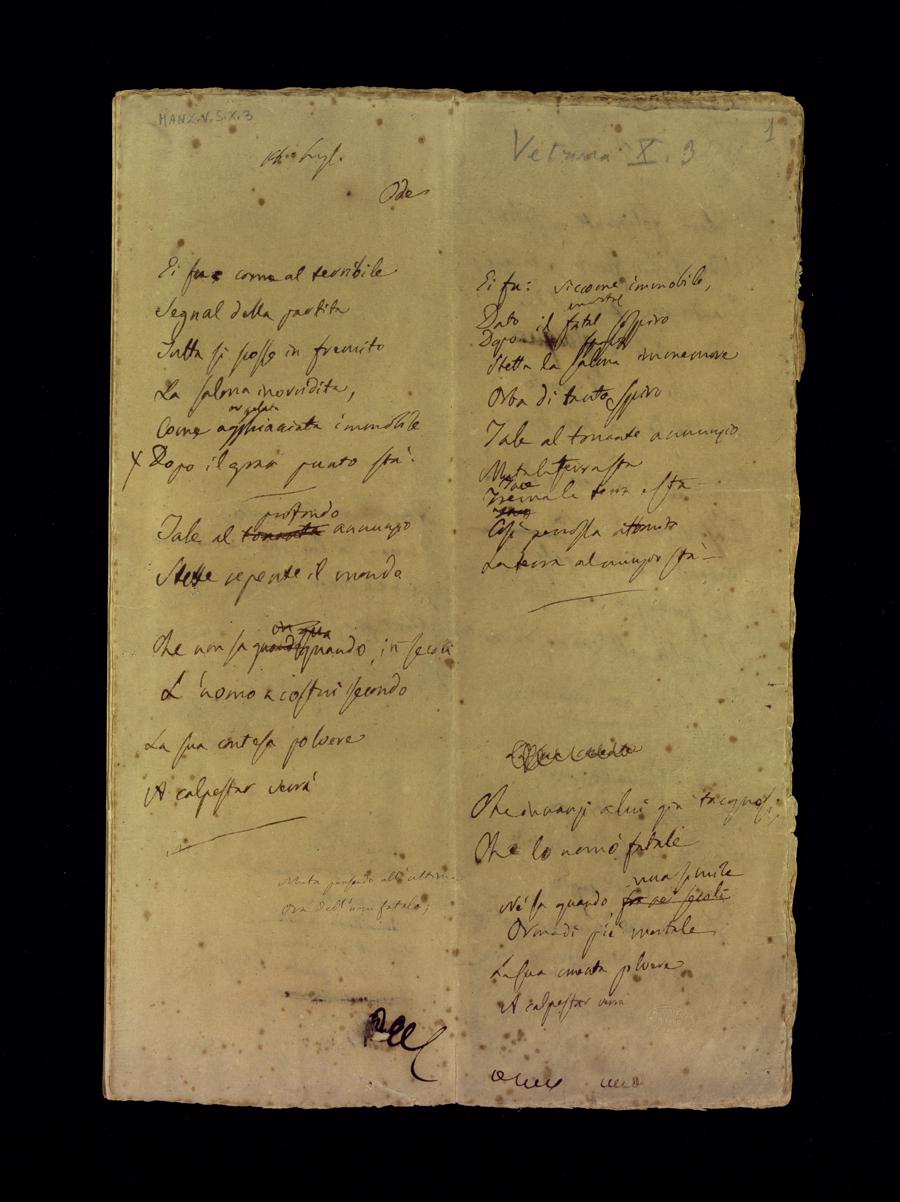 MANZ.V.S.X.3
Ode
Ei fu; come al terribile
Segnal della partita
Tutta si scosse in fremito
La salma inorridita,
or gelata
Come agghiacciata immobile
X Dopo il gran punto sta:
profondo
Tale al tonante annunzio
Stette repente il mondo
Che non sa quando quando, in secoli
L'uomo a costui secondo
La sua contesa polvere
A calpestar verrà
Muta pensando all'ultima
Ora dell'uom fatale;
1
Vetrina X. 3
Ei fu: siccome immobile,
mortal
Dato il fatal sospiro
Dopo
Stette la salma immemore
Orba di tanto spiro
Tale al tonante annunzio
Muta la terra sta
Trema la terra e sta
Così percossa attonita
La terra al nunzio sta
Che innanzi a lui già tacque
Che lo nomò fatale
una simile
Né sa quando fra voi secoli
Orma di piè mortale
La sua cruenta polvere
A calpestar verrà